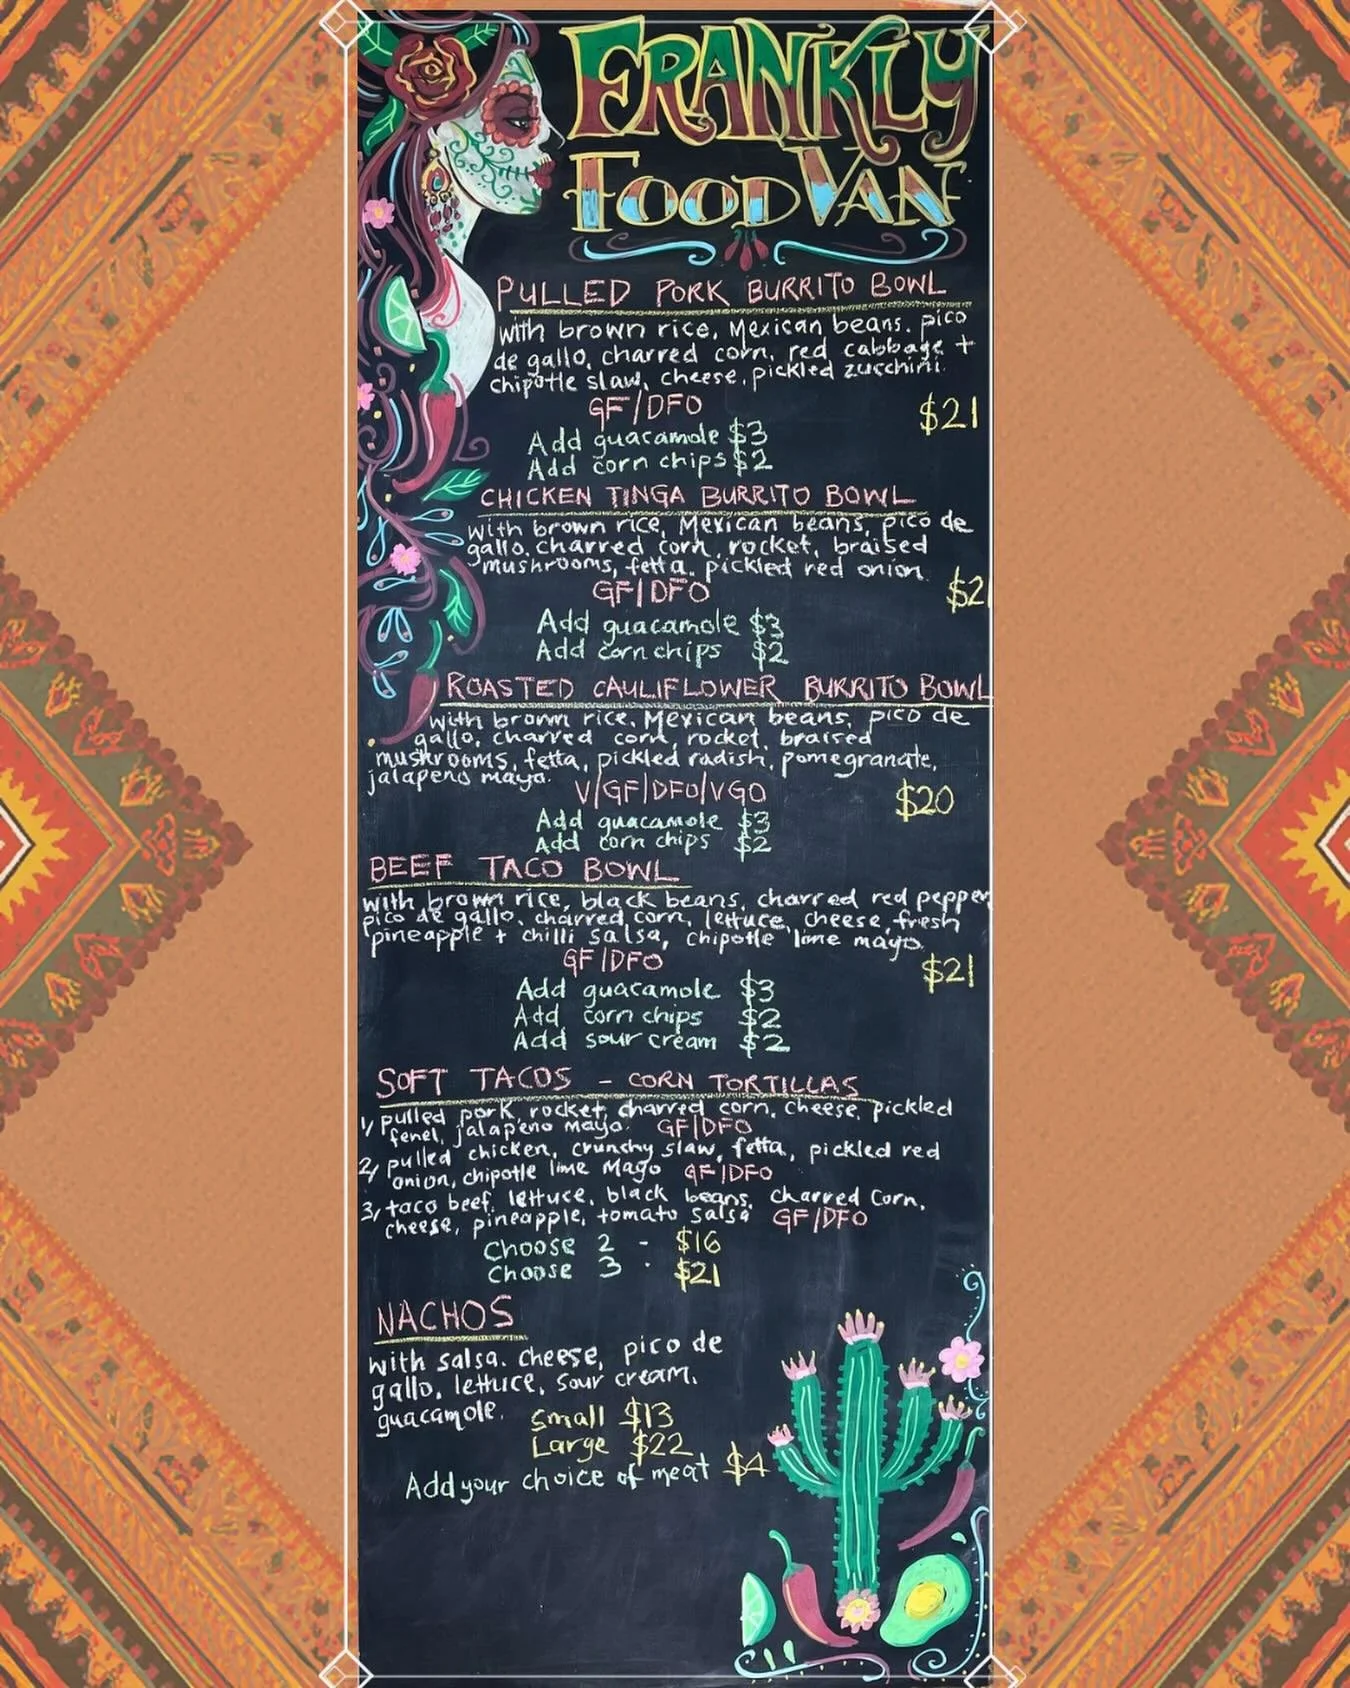 FRANKLY
FOOD VAN
PULLED PORK BURRITO BOWL
with brown rice, Mexican beans. pico
de gallo, charred corn, red cabbage +
chipotle slaw, cheese, pickled zucchini.
GF/DFO
$21
Add guacamole $3
Add corn chips $2
CHICKEN TINGA BURRITO BOWL
with brown rice, Mexican beans, pico de
gallo, charred corn, rocket, braised
mushrooms, fetta, pickled red onion.
GF/DFO
$21
Add guacamole $3
Add corn chips $2
ROASTED CAULIFLOWER BURRITO BOWL
with brown rice, Mexican beans, pico de
gallo, charred corn, rocket, braised
mushrooms, fetta, pickled radish, pomegranate,
jalapeno mayo.
V/GF/DFO/VGO
$20
Add guacamole $3
Add corn chips $2
BEEF TACO BOWL
with brown rice, black beans, charred red pepper
pico de gallo, charred corn, lettuce, cheese, fresh
pineapple + chilli salsa, chipotle lime mayo.
GF/DFO
$21
Add guacamole $3
Add corn chips $2
Add sour cream $2
SOFT TACOS - CORN TORTILLAS
1/ pulled pork, rocket, charred corn, cheese, pickled
fenel, jalapeno mayo. GF/DFO
2/ pulled chicken, crunchy slaw, fetta, pickled red
onion, chipotle lime Mayo GF/DFO
3/ taco beef, lettuce, black beans, charred corn,
cheese, pineapple, tomato salsa GF/DFO
Choose 2 - $16
Choose 3 - $21
NACHOS
with salsa, cheese, pico de
gallo, lettuce, sour cream,
guacamole.
Small $13
Large $22
Add your choice of meat $4